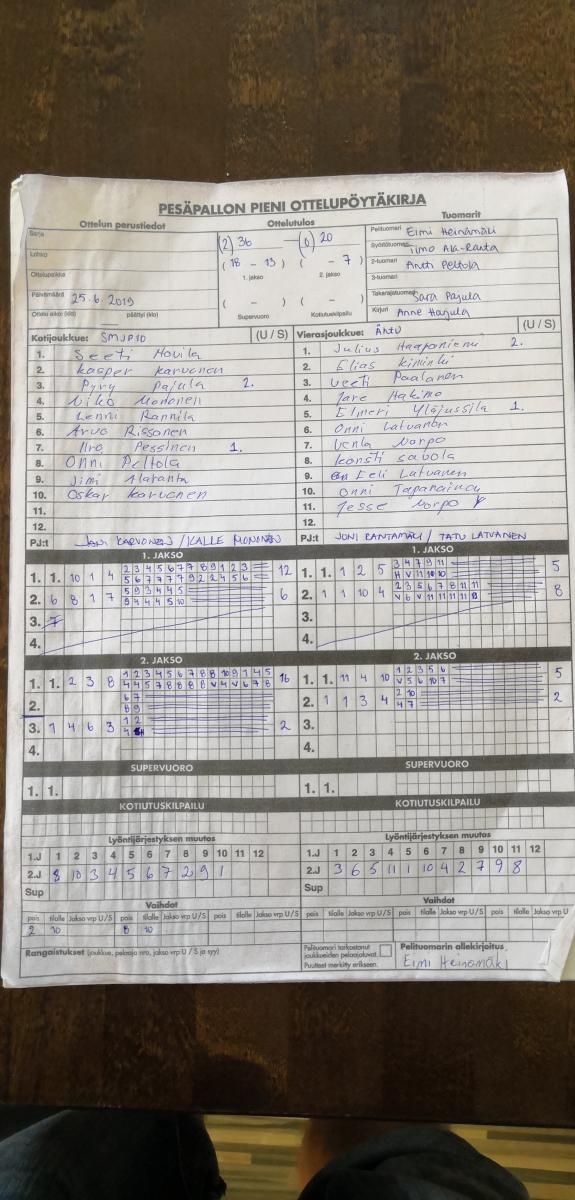 PESÄPALLON PIENI OTTELUPÖYTÄKIRJA
Ottelun perustiedot Ottelutulos Tuomarit
Sarja
Lohko
Ottelupaikka
Päivämäärä 25.6.2019
Ottelu alkoi (klo) päättyi (klo)
(2) 36 — (0) 20
(18 - 13) ( - 7)
1. jakso 2. jakso
( - ) ( - )
Supervuoro Kotiutuskilpailu
Pelituomari Eimi Heinämäki
Syöttötuomari Timo Ala-Ranta
2-tuomari Antti Peltola
3-tuomari
Takarajatuomari Sara Pajula
Kirjuri Anne Harjula
Kotijoukkue: SMJP10 (U / S)
1. Seeti Hovila
2. Kasper Karvonen
3. Pyry Pajula 2.
4. Niko Mononen
5. Lenni Rannila
6. Arvo Rissanen
7. Iiro Pessinen 1.
8. Onni Peltola
9. Jimi Alaranta
10. Oskar Karvonen
11.
12.
PJ:t JANI KARVONEN / KALLE MONONEN
Vierasjoukkue: ÄhTU (U / S)
1. Julius Haapaniemi 2.
2. Elias Kiminki
3. Veeti Paalanen
4. Jare Hakimo
5. Elmeri Ylöjussila 1.
6. Onni Latvanen
7. Venla Norpo
8. Konsti Savola
9. Eeli Latvanen
10. Onni Tapanainen
11. Jesse Norpo
12.
PJ:t JONI RANTAMÄKI / TATU LATVANEN
1. JAKSO
1. 1. 10 1 4 2 3 4 5 6 7 7 8 9 1 2 3 12
5 6 7 7 7 7 9 2 2 4 5 6
2. 6 8 1 7 5 9 3 4 4 5 6
9 4 4 4 5 10
3. 7
4.
1. JAKSO
1. 1. 1 2 5 3 4 7 9 11 5
H V 11 10 10
2. 1 1 10 4 2 3 5 6 7 8 11 11 8
V 6 V 11 11 11 11 8
3.
4.
2. JAKSO
1. 1. 2 3 8 1 2 3 4 5 6 7 8 8 10 9 1 4 5 16
4 4 5 7 8 8 8 8 V 4 V 6 7 8
2. 6 7
8 9
3. 1 4 6 3 1 2 2
4.
2. JAKSO
1. 1. 11 4 10 1 2 3 5 6 5
V 5 6 10 7
2. 1 1 3 4 2 10 2
4 7
3.
4.
SUPERVUORO
1. 1.
SUPERVUORO
1. 1.
KOTIUTUSKILPAILU
KOTIUTUSKILPAILU
Lyöntijärjestyksen muutos
1.J 1 2 3 4 5 6 7 8 9 10 11 12
2.J 8 10 3 4 5 6 7 2 9 1
Sup
Lyöntijärjestyksen muutos
1.J 1 2 3 4 5 6 7 8 9 10 11 12
2.J 3 6 5 11 1 10 4 2 7 9 8
Sup
Vaihdot
pois tilalle Jakso vrp U/S pois tilalle Jakso vrp U/S pois tilalle Jakso vrp U/S
2 10 8 10
Vaihdot
pois tilalle Jakso vrp U/S pois tilalle Jakso vrp U/S pois tilalle Jakso vrp U
Rangaistukset (joukkue, pelaaja nro, jakso vrp U / S ja syy)
Pelituomari tarkastanut
joukkueiden pelaajaluvat.
Puutteet merkitty erikseen.
Pelituomarin allekirjoitus
Eimi Heinämäki